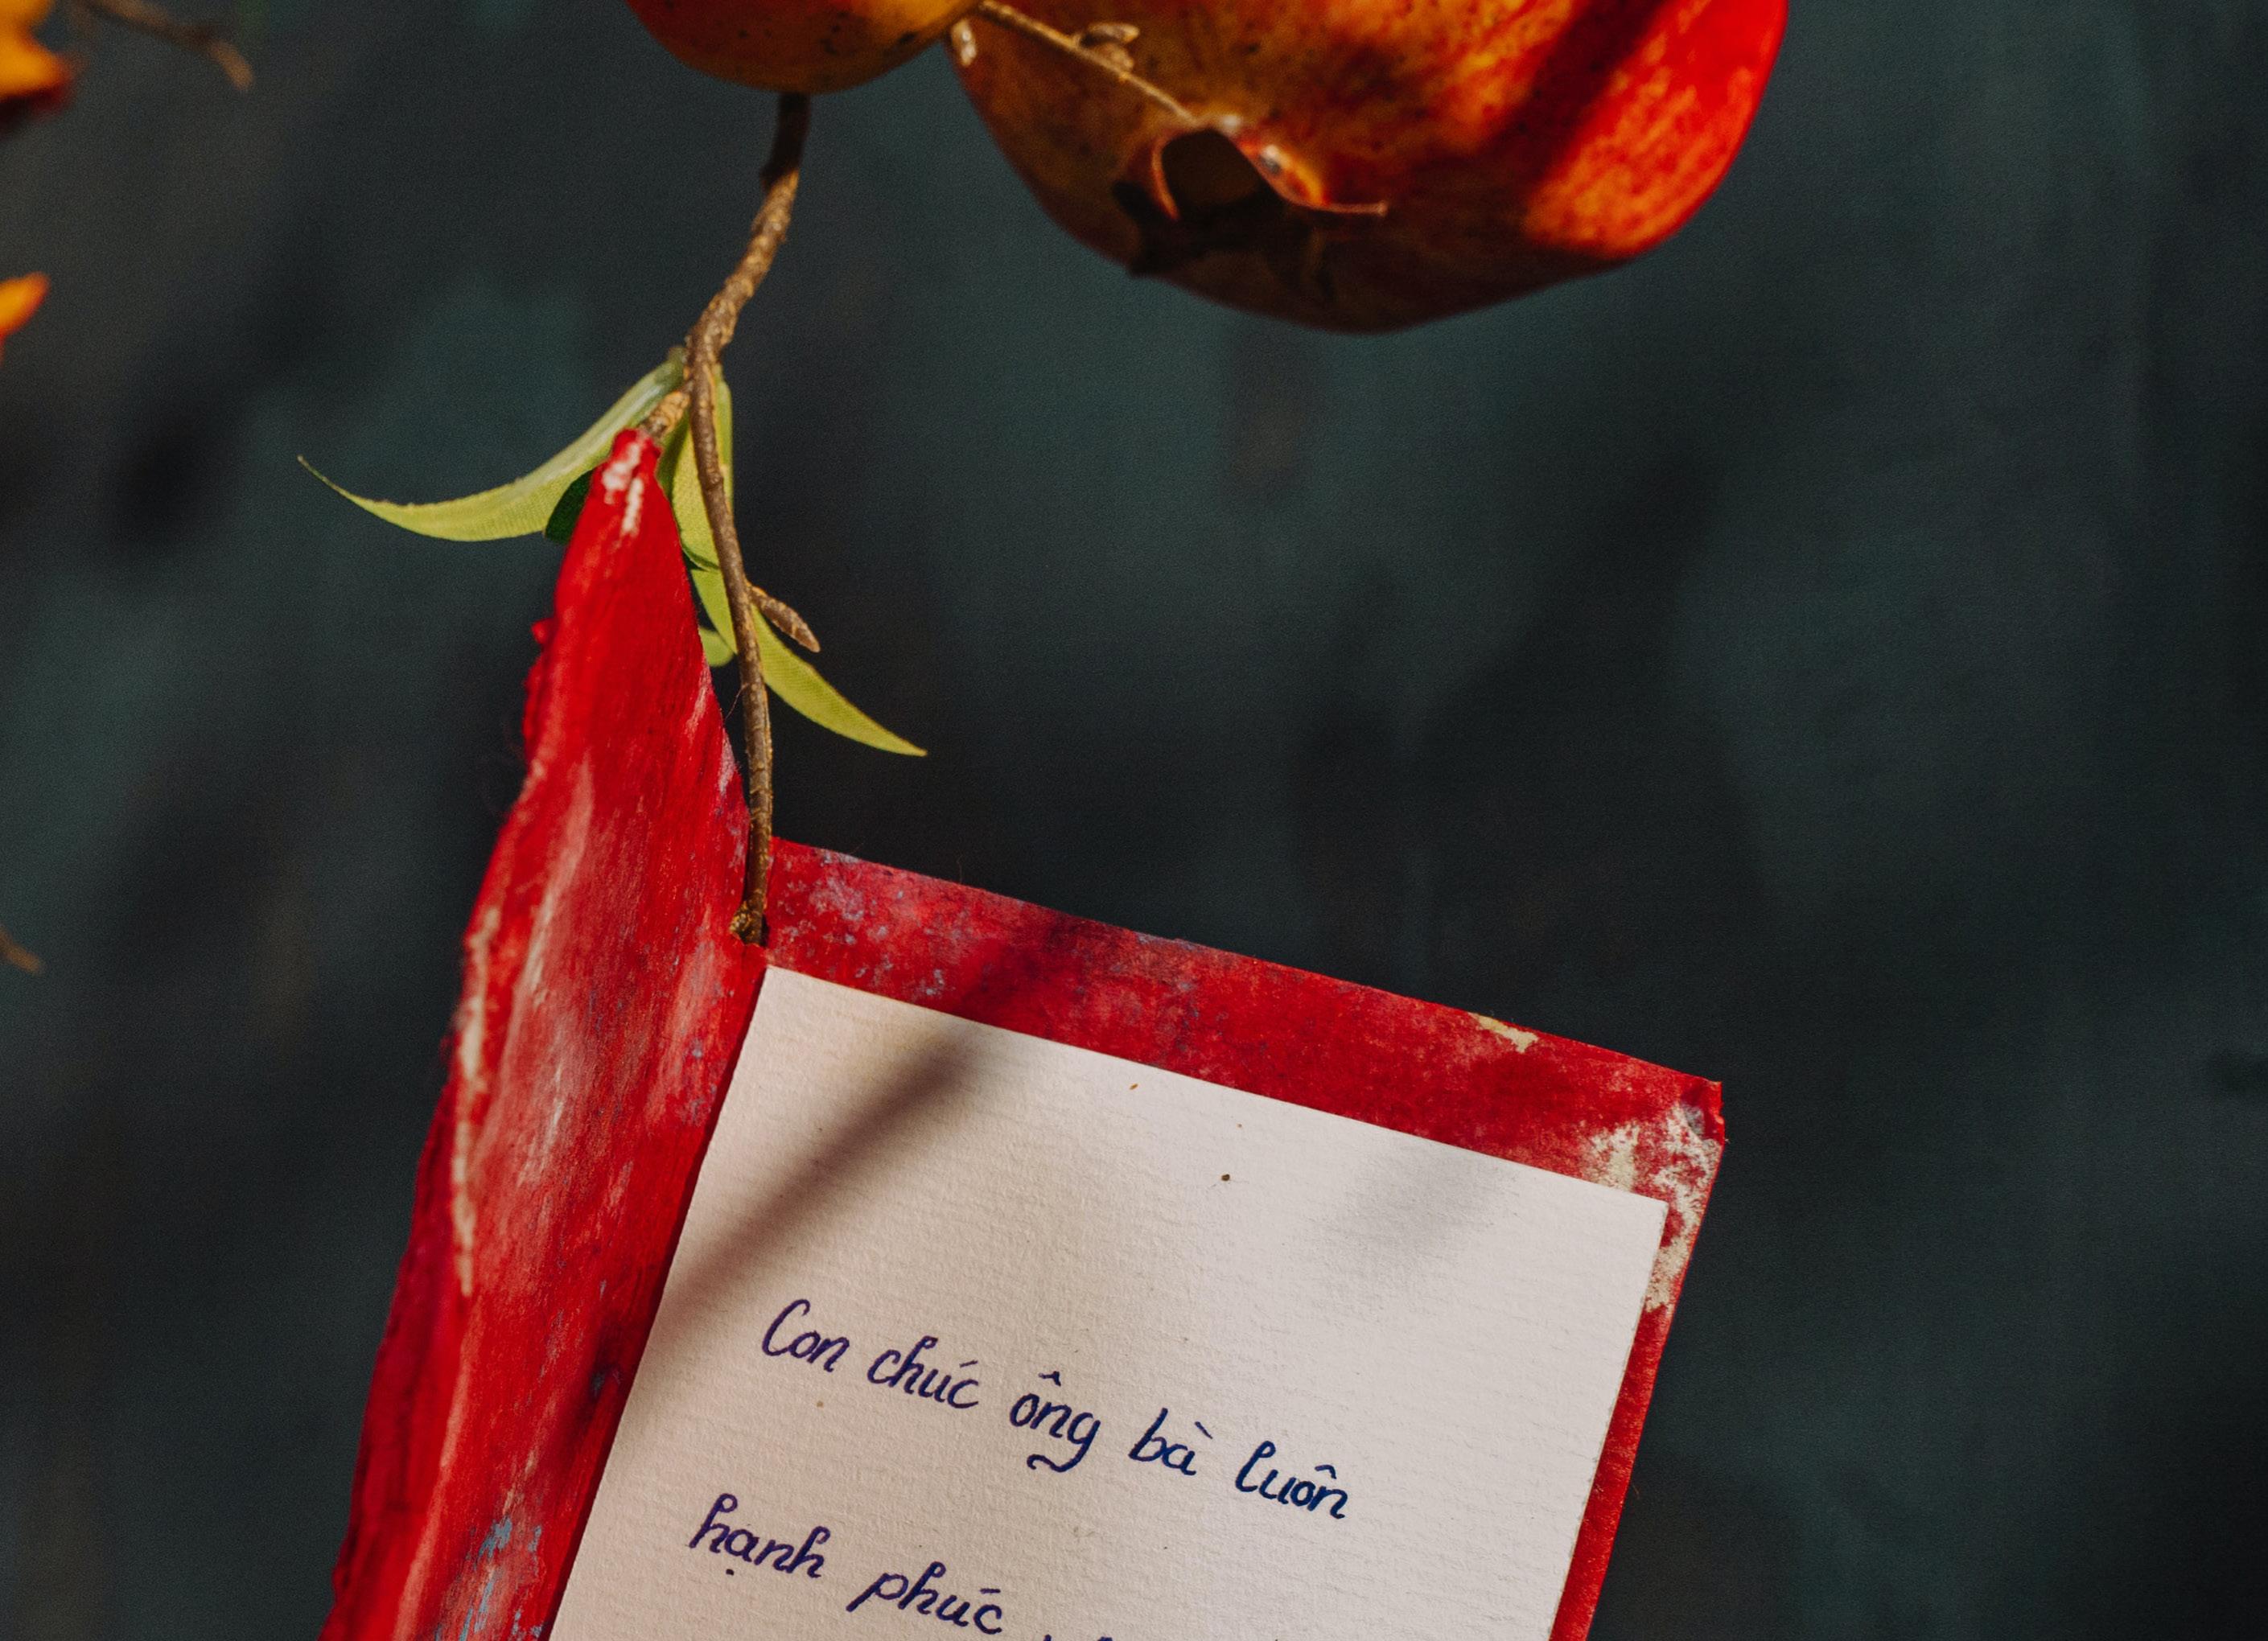 Con chúc ông bà luôn
hạnh phúc